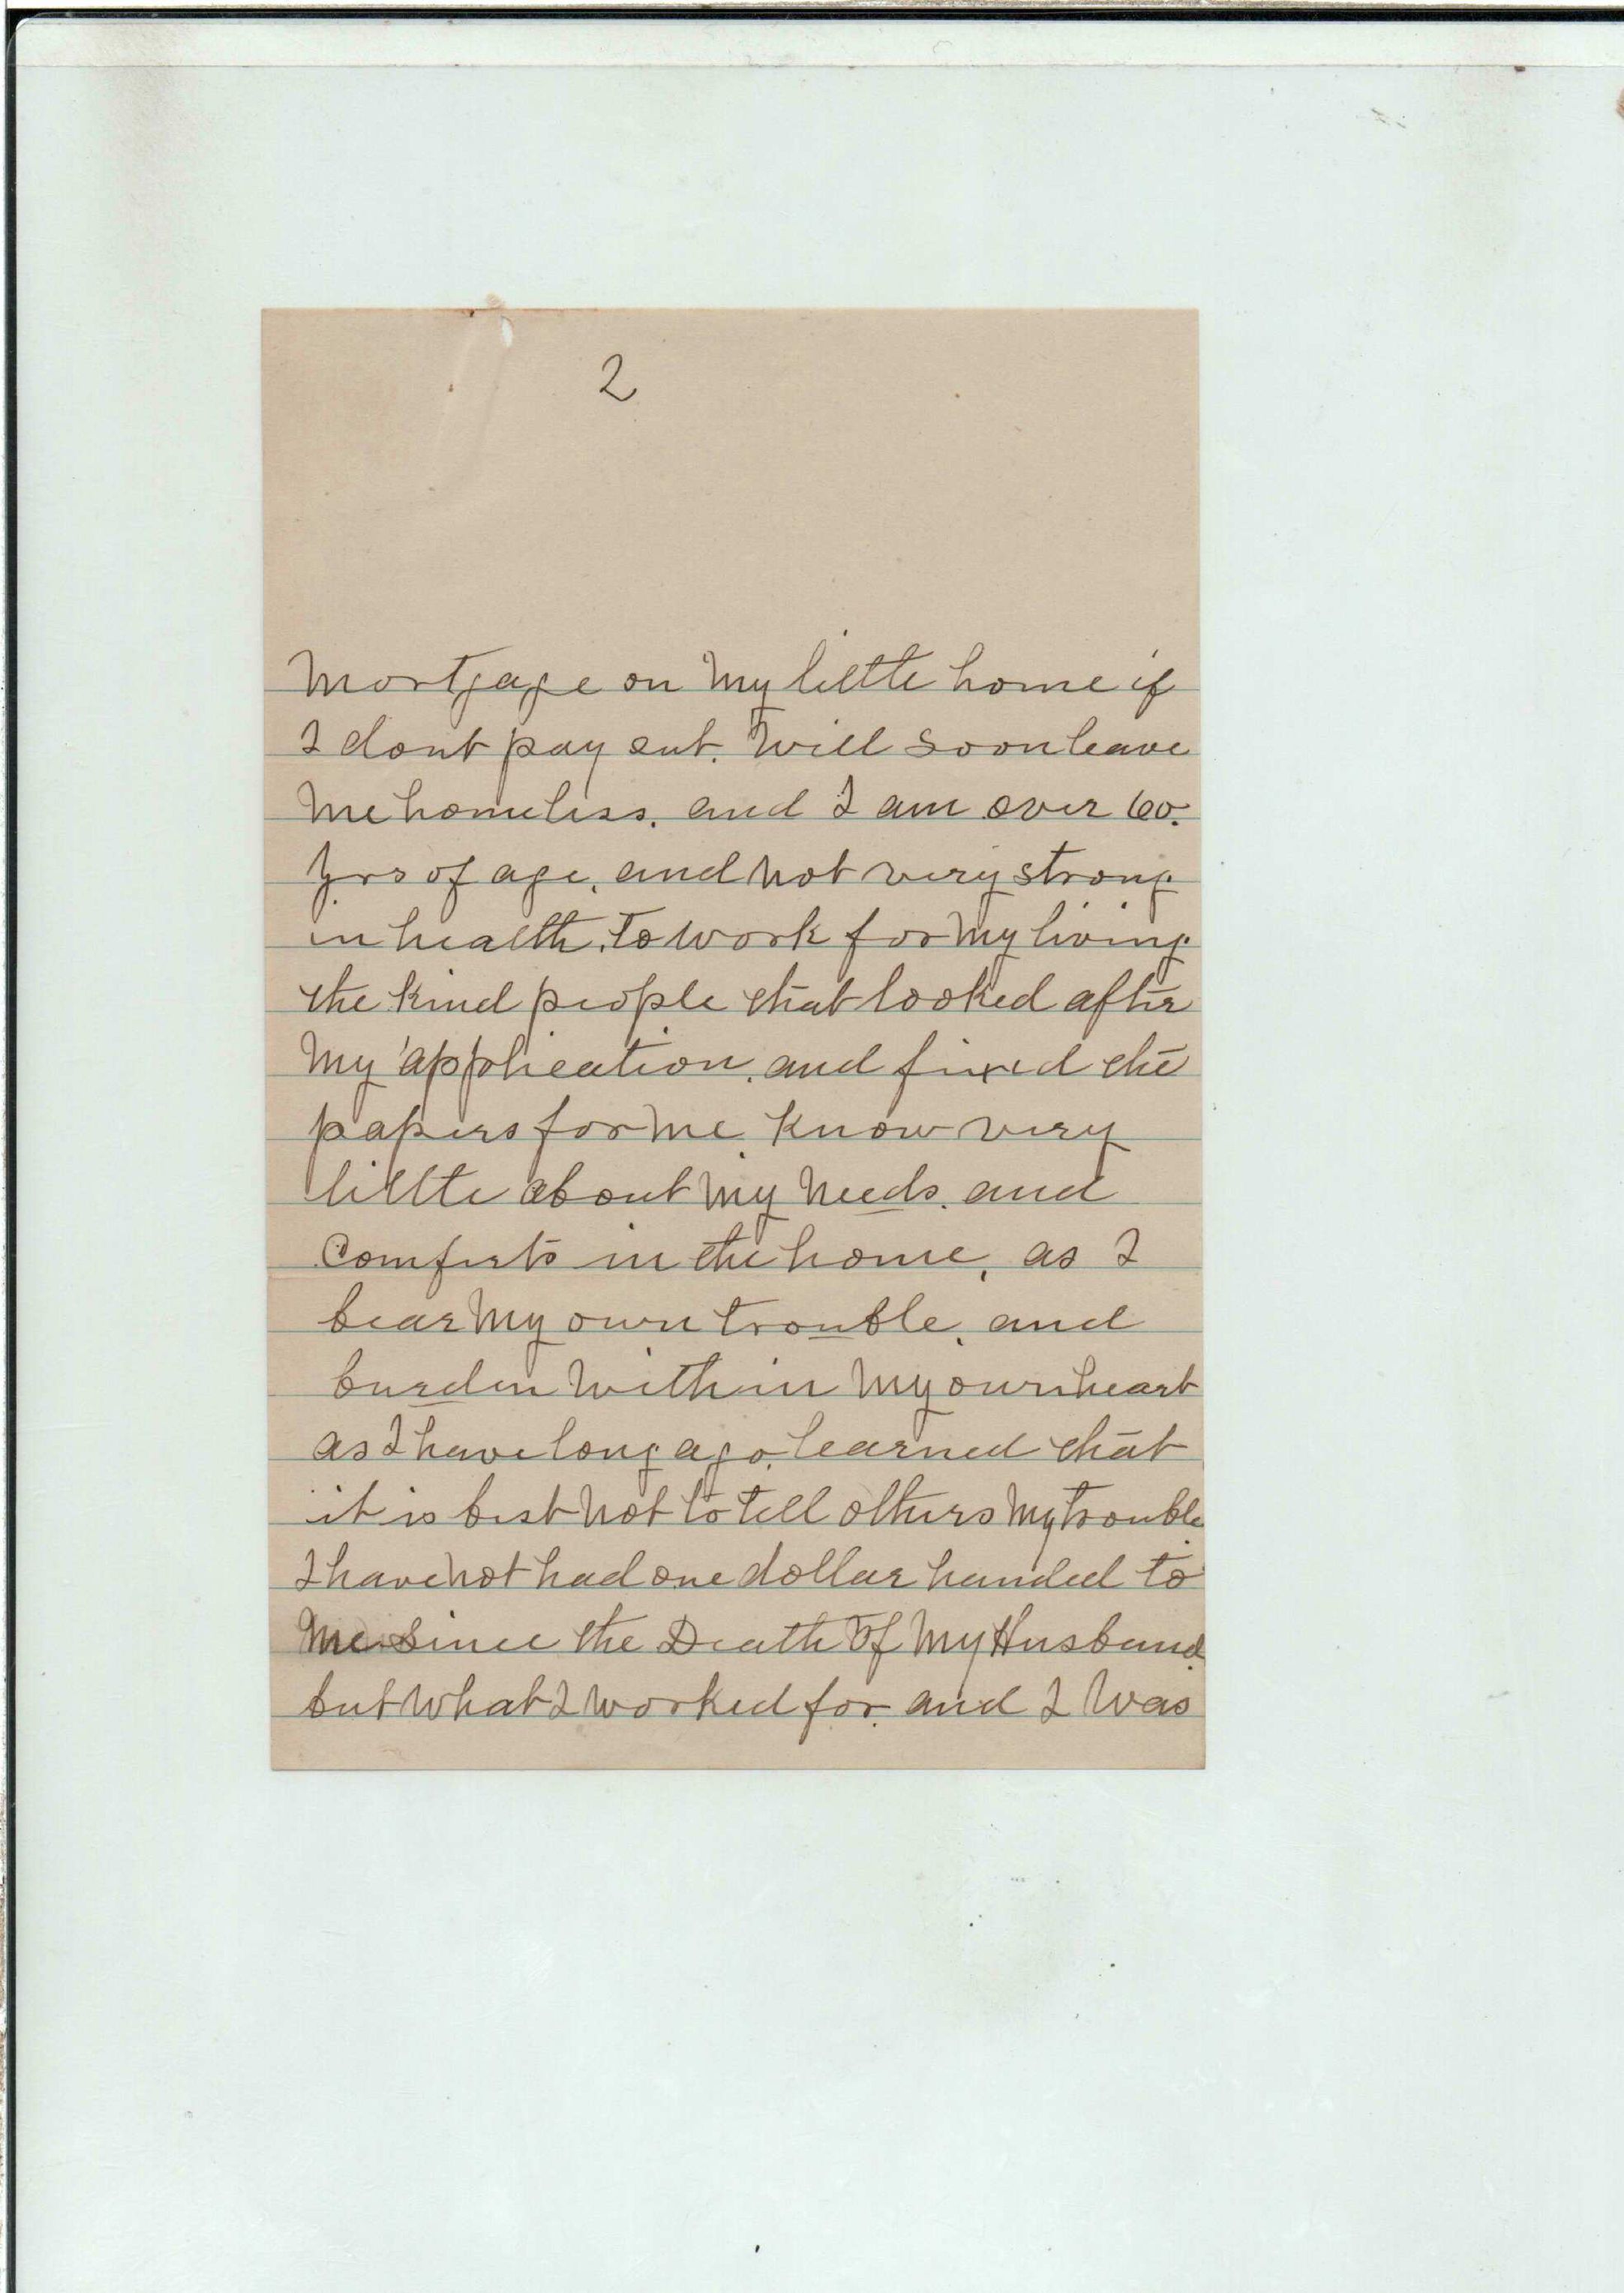 2
Mortgage on My little home if
I dont pay out. Will soon leave
Me homeless. and I am over 60.
Yrs of age, and Not very strong
in health. To work for My living.
the kind people that looked after
My application, and fixed the
papers for Me. Know very
little about My Needs. and
Comforts in the home, as I
bear My own trouble, and
burden Within My own heart
as I have long ago. learned that
it is best Not to tell others My trouble.
I have Not had one dollar handed to
Me Since the Death Of My Husband.
but What I worked for. and I Was